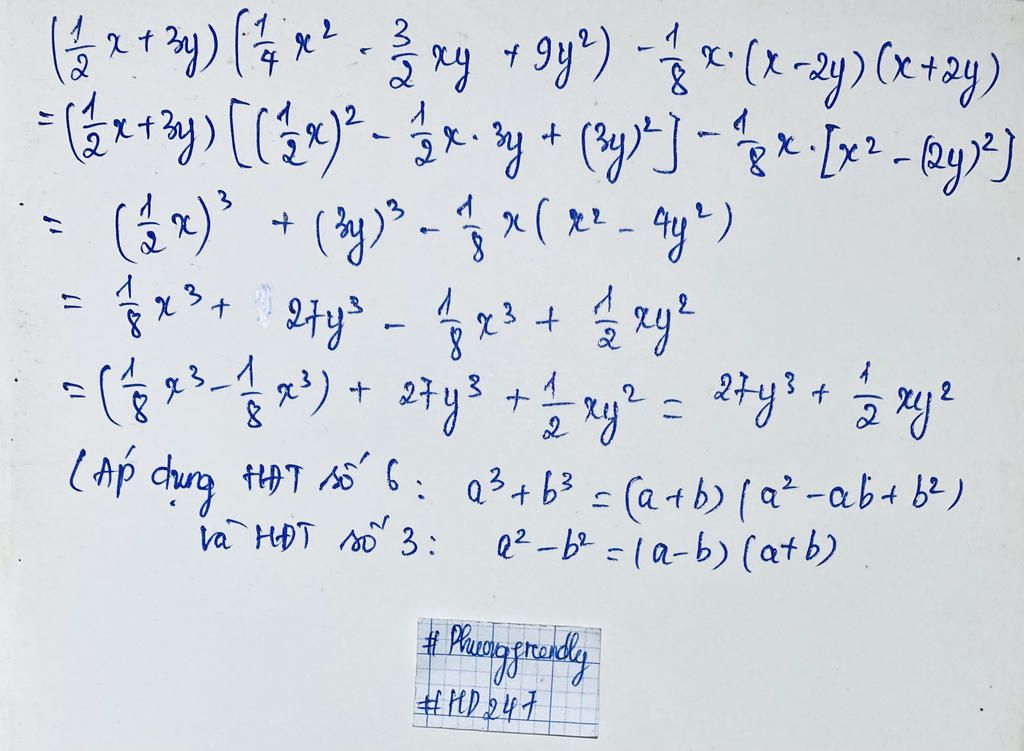 (1/2 x + 3y) (1/4 x² - 3/2 xy + 9y²) - 1/8 x · (x - 2y) (x + 2y)
= (1/2 x + 3y) [(1/2 x)² - 1/2 x · 3y + (3y)²] - 1/8 x · [x² - (2y)²]
= (1/2 x)³ + (3y)³ - 1/8 x (x² - 4y²)
= 1/8 x³ + 27y³ - 1/8 x³ + 1/2 xy²
= (1/8 x³ - 1/8 x³) + 27y³ + 1/2 xy² = 27y³ + 1/2 xy²
(Áp dụng HĐT số 6: a³ + b³ = (a + b) (a² - ab + b²)
và HĐT số 3: a² - b² = (a - b) (a + b)
# Phuonggreendly
#HD247